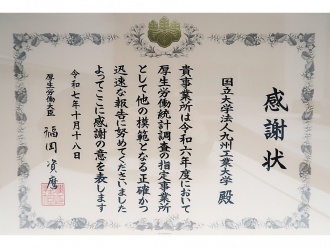 感謝状
国立大学法人九州工業大学 殿
貴事業所は令和六年度において
厚生労働統計調査の指定事業所
として他の模範となる正確かつ
迅速な報告に努めてくださいました
よってここに感謝の意を表します
令和七年十月十八日
厚生労働大臣 福岡資麿